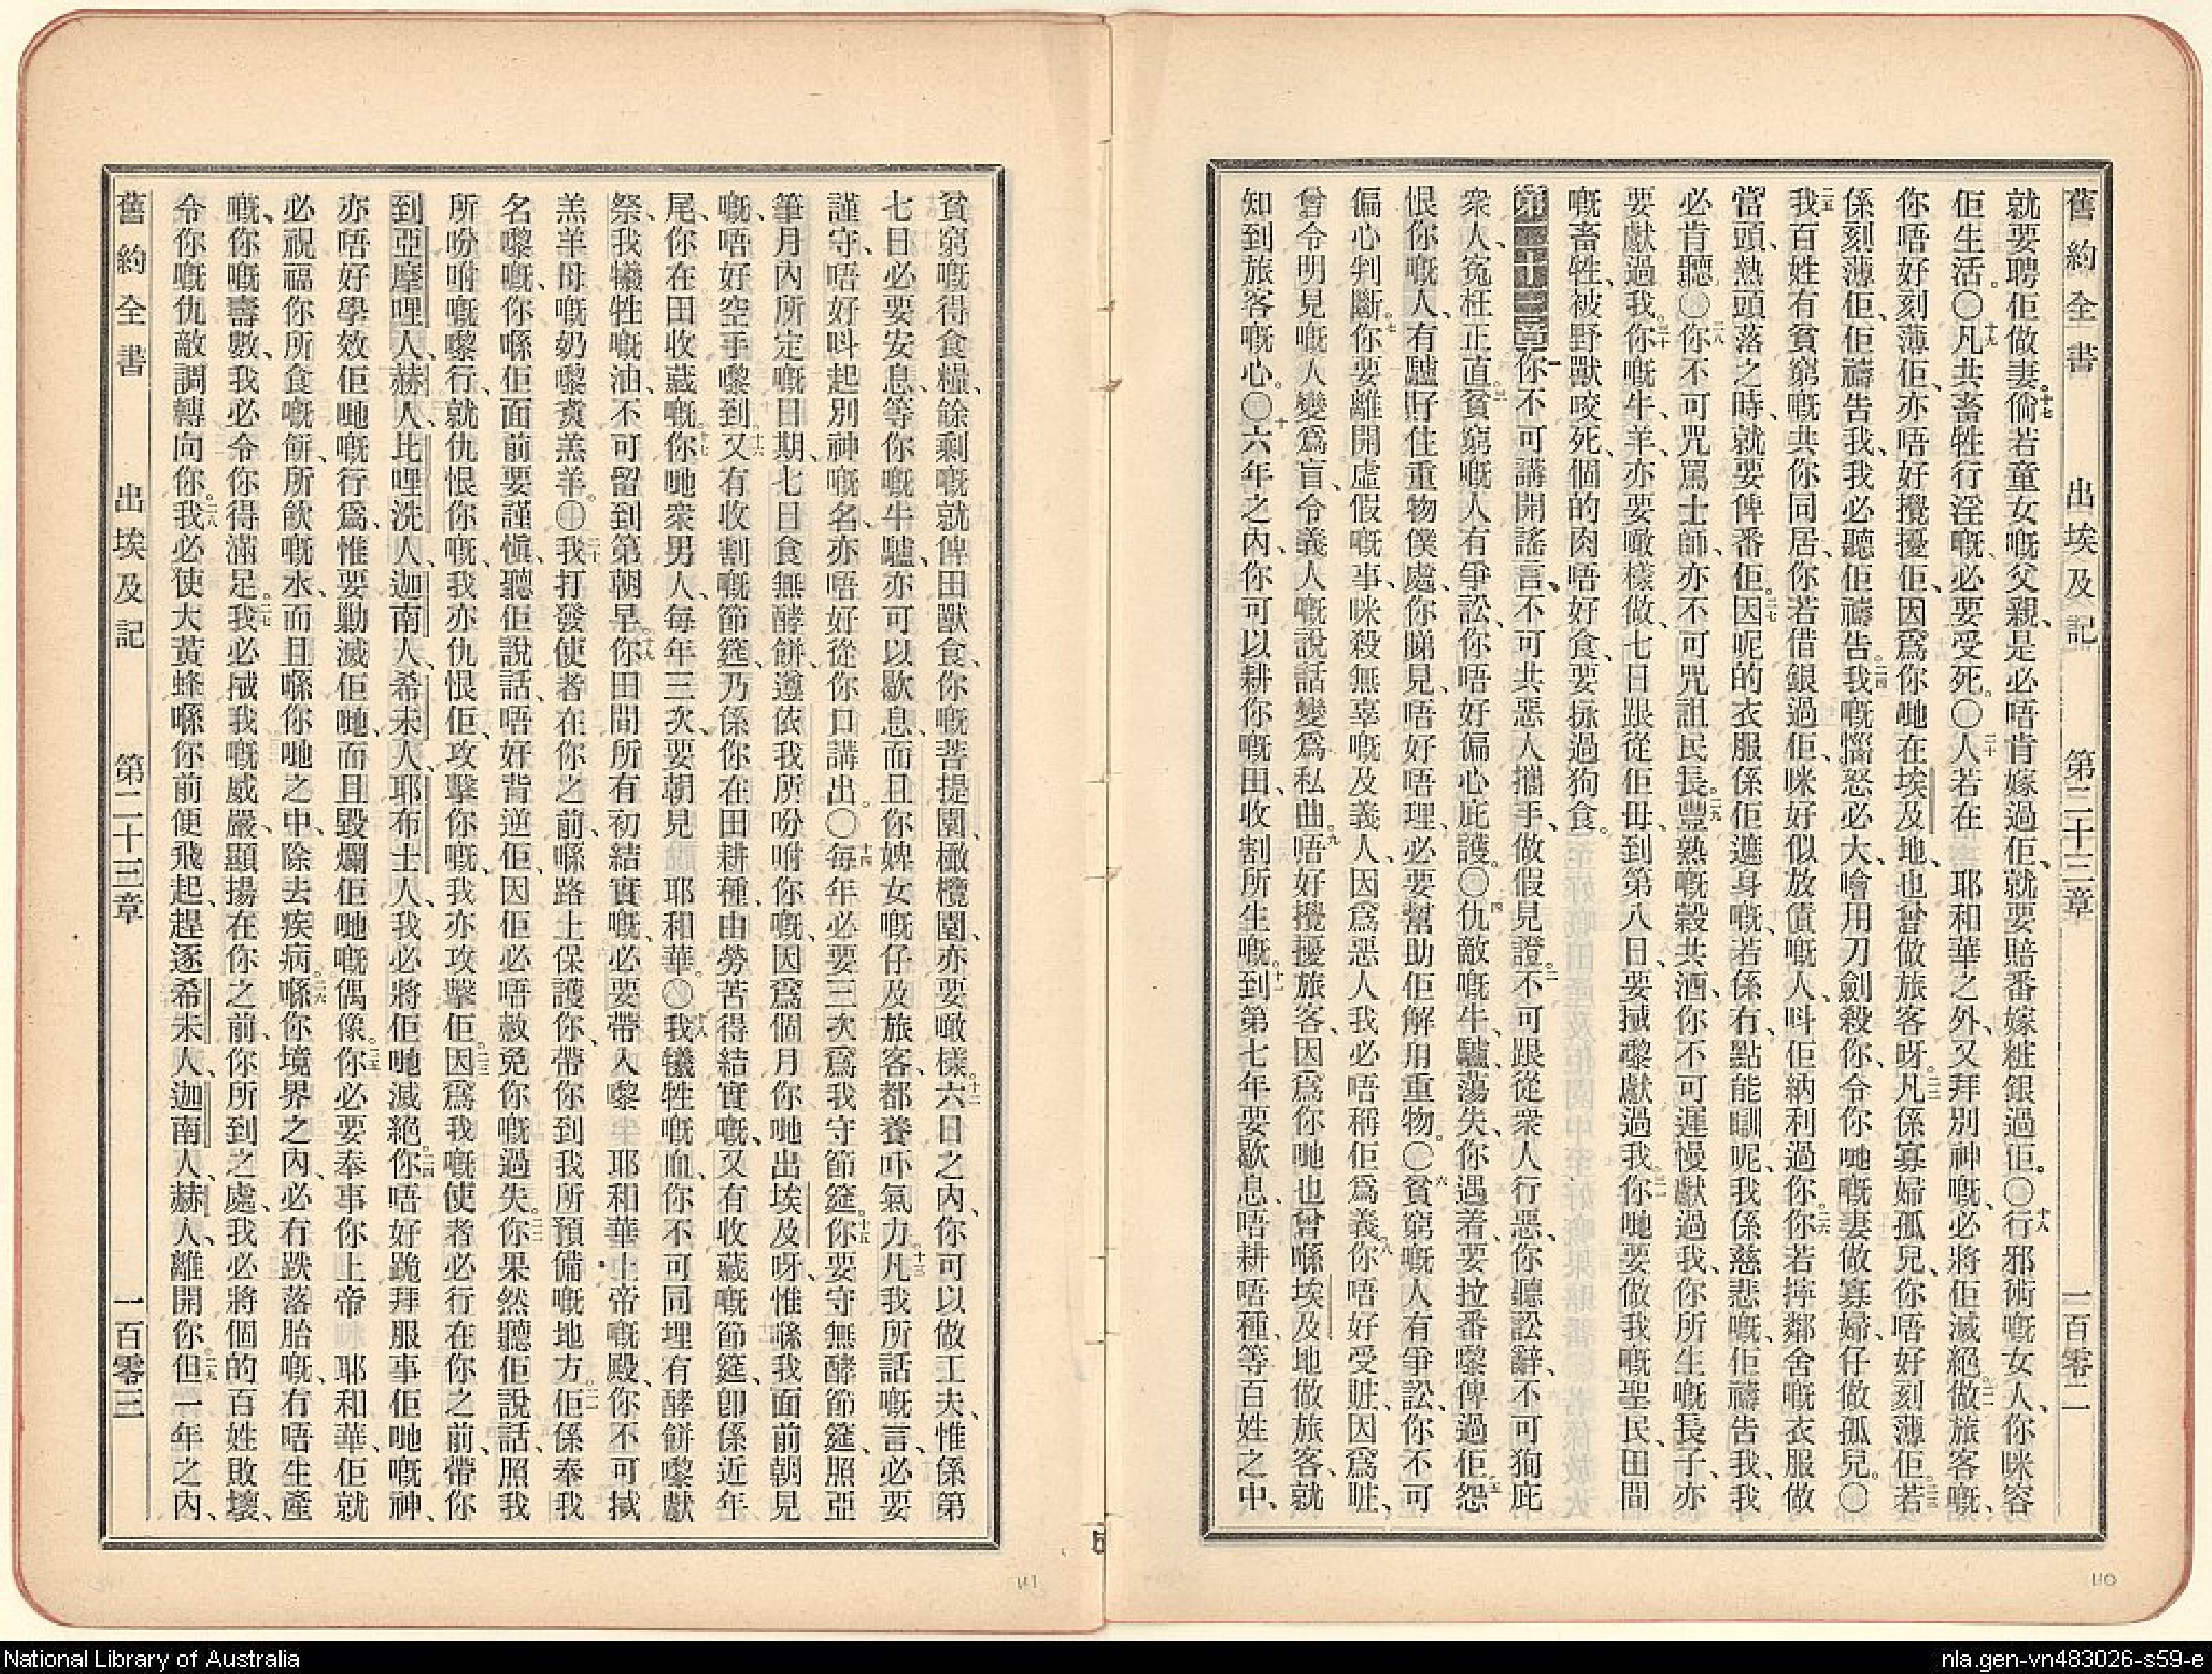 舊約全書 出埃及記 第二十三章 一百零二
就要聘佢做妻。十七倘若童女嘅父親、是必唔肯嫁過佢、就要賠番嫁粧銀過佢。〇十八行邪術嘅女人、你咪容
佢生活。〇十九凡共畜牲行淫嘅、必要受死。〇二十人若在 耶和華之外、又拜別神嘅、必將佢滅絕。二一做旅客嘅、
你唔好刻薄佢、亦唔好攪擾佢、因爲你哋在埃及地、也曾做旅客呀。二二凡係寡婦孤兒、你唔好刻薄佢。二三若
係刻薄佢、佢禱告我、我必聽佢禱告。二四我嘅惱怒必大、噲用刀劍殺你、令你哋嘅妻做寡婦、仔做孤兒。〇
二五我百姓有貧窮嘅、共你同居、你若借銀過佢、咪好似放債嘅人、呌佢納利過你。二六你若擰鄰舍嘅衣服做
當頭、熱頭落之時、就要俾番佢。二七因呢的衣服係佢遮身嘅、若係有、點能瞓呢、我係慈悲嘅、佢禱告我、我
必肯聽。〇二八你不可咒罵士師、亦不可咒詛民長。二九豐熟嘅穀共酒、你不可遲慢獻過我、你所生嘅長子、亦
要獻過我。三十你嘅牛、羊、亦要噉樣做、七日跟從佢毋、到第八日、要搣嚟獻過我。三一你哋要做我嘅聖民、田間
嘅畜牲、被野獸咬死、個的肉唔好食、要掭過狗食。
第二十三章一你不可講開謠言、不可共惡人攜手、做假見證。二不可跟從衆人行惡、你聽訟辭、不可狥庇
衆人、冤枉正直。三貧窮嘅人有爭訟、你唔好偏心庇護。〇四仇敵嘅牛、驢、蕩失、你遇着、要拉番嚟俾過佢。五怨
恨你嘅人、有驢𠹌住重物僕處、你睇見、唔好唔理、必要幫助佢解甪重物。〇六貧窮嘅人有爭訟、你不可
偏心判斷。七你要離開虛假嘅事、咪殺無辜嘅及義人、因爲惡人我必唔稱佢爲義。八你唔好受賍、因爲賍、
曾令明見嘅人變爲盲、令義人嘅說話變爲私曲。九唔好攪擾旅客、因爲你哋也曾喺埃及地做旅客、就
知到旅客嘅心。〇十六年之內、你可以耕你嘅田、收割所生嘅。十一到第七年要歇息、唔耕唔種、等百姓之中、
貧窮嘅得食糧、餘剩嘅就俾田獸食、你嘅菩提園、橄欖園、亦要噉樣。十二六日之內、你可以做工夫、惟係第
七日必要安息、等你嘅牛驢、亦可以歇息、而且你婢女嘅仔及旅客、都養吓氣力。十三凡我所話嘅言、必要
謹守、唔好呌起別神嘅名、亦唔好從你口講出。〇十四每年必要三次爲我守節筵。十五你要守無酵節筵、照亞
筆月內所定嘅日期、七日食無酵餅、遵依我所吩咐你嘅、因爲個月你哋出埃及呀、惟喺我面前朝見
嘅、唔好空手嚟到。十六又有收割嘅節筵、乃係你在田耕種、由勞苦得結實嘅、又有收藏嘅節筵、卽係近年
尾、你在田收藏嘅。十七你哋衆男人、每年三次、要朝見 耶和華。〇十八我犧牲嘅血、你不可同埋有酵餅嚟獻
祭、我犧牲嘅油、不可留到第朝早。十九你田間所有初結實嘅、必要帶入嚟 耶和華上帝嘅殿、你不可搣
羔羊母嘅奶嚟煑羔羊。〇二十我打發使者在你之前、喺路上保護你、帶你到我所預備嘅地方。二一佢係奉我
名嚟嘅、你喺佢面前要謹愼、聽佢說話、唔好背逆佢、因佢必唔赦免你嘅過失。二二你果然聽佢說話、照我
所吩咐嘅嚟行、就仇恨你嘅、我亦仇恨佢、攻擊你嘅、我亦攻擊佢。二三因爲我嘅使者必行在你之前、帶你
到亞摩哩人、赫人、比哩洗人、迦南人、希未人、耶布士人、我必將佢哋滅絕。二四你唔好跪拜服事佢哋嘅神、
亦唔好學效佢哋嘅行爲、惟要勦滅佢哋、而且毀爛佢哋嘅偶像。二五你必要奉事你上帝 耶和華、佢就
必祝福你所食嘅餅、所飮嘅水、而且喺你哋之中、除去疾病。二六喺你境界之內、必冇跌落胎嘅、冇唔生產
嘅、你嘅壽數、我必令你得滿足。二七我必搣我嘅威嚴、顯揚在你之前、你所到之處、我必將個的百姓敗壞、
令你嘅仇敵調轉向你。二八我必使大黃蜂喺你前便飛起、趕逐希未人、迦南人、赫人、離開你。二九但一年之內、
舊約全書 出埃及記 第二十三章 一百零三
111
110
National Library of Australia
nla.gen-vn483026-s59-e